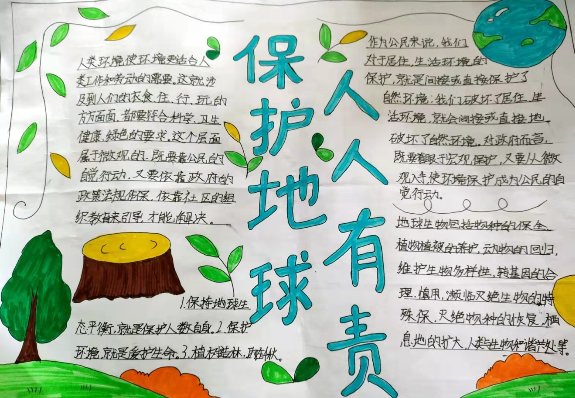 保护地球
人人有责
人类环境使环境更适合人
类工作和劳动的需要。这就涉
及到人们的衣食、住、行、玩的
方方面面,都要符合科学、卫生、
健康、绿色的要求。这个层面
属于微观的,既要靠公民的
自觉行动,又要依靠政府的
政策法规作保,依靠社区的组
织教育来引导,才能解决。
1.保持地球生
态平衡,就是保护人类自身。2.保护
环境,就是爱护生命。3.植树造林,
作为公民来说,我们
对于居住、生活环境的
保护,就是间接或直接保护了
自然环境;我们破坏了居住、生
活环境,就会间接或直接地
破坏了自然环境。对政府而言,
既要着眼于宏观保护,又要从微
观入手使环境保护成为公民的自
觉行动。
地球生物包括物种的保全,
植物植被的养护,动物的回归,
维护生物多样性,转基因的合
理、慎用,濒临灭绝生物的特
殊保、灭绝物种的恢复,栖
息地的扩大,人类与生物和谐共处等。